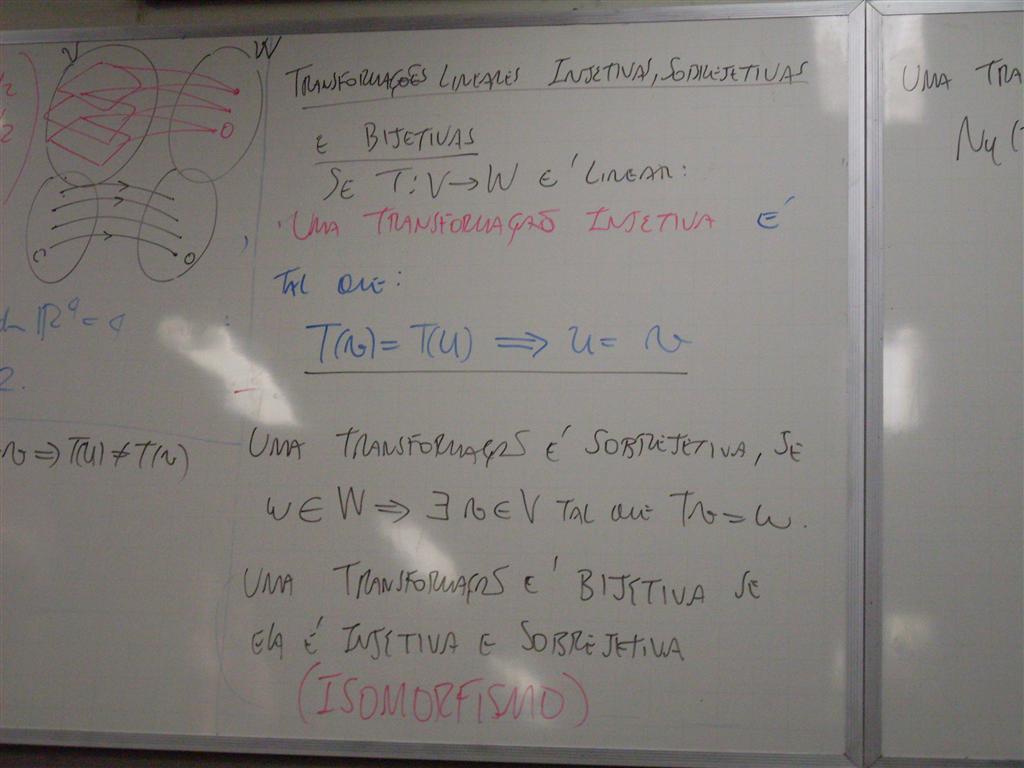 V W
O
C O
dim R⁴ = 4
2.
v ⟹ T(u) ≠ T(v)
TRANSFORMAÇÕES LINEARES INJETIVAS, SOBREJETIVAS
E BIJETIVAS
SE T: V → W É LINEAR:
UMA TRANSFORMAÇÃO INJETIVA É
TAL QUE:
T(v) = T(u) ⟹ u = v
UMA TRANSFORMAÇÃO É SOBREJETIVA, SE
w ∈ W ⟹ ∃ v ∈ V TAL QUE Tv = w.
UMA TRANSFORMAÇÃO É BIJETIVA SE
ELA É INJETIVA E SOBREJETIVA
(ISOMORFISMO)
UMA TRA
Nu(